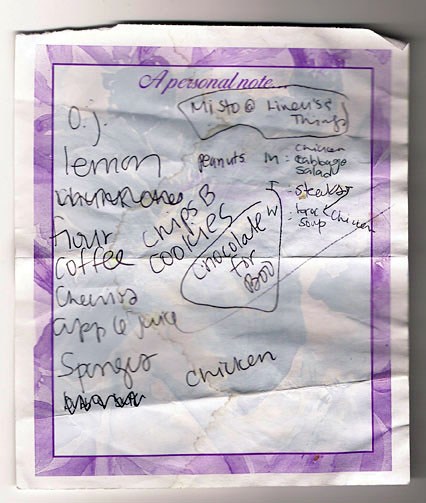 A personal note...
Misto @ Linens &
Things
O.j.
lemon
flour
coffee
Cheerios
apple juice
Sponges
peanuts
chips B
cookies
chocolate
for
BOO
chicken
M: chicken
cabbage
salad
T - steaks
W
soup
chicken